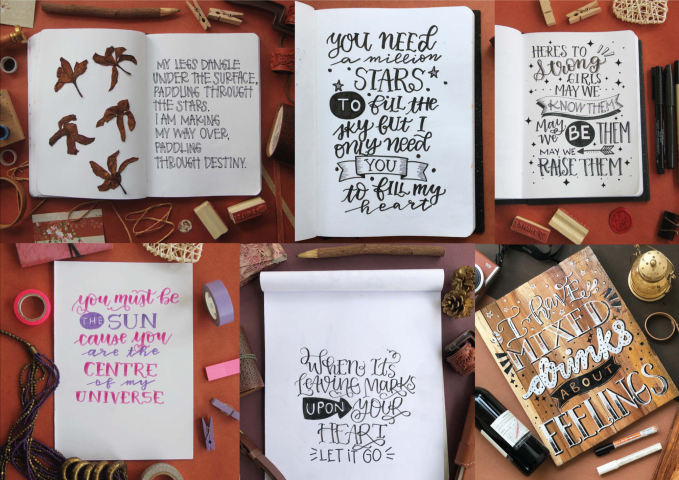 MY LEGS DANGLE
UNDER THE SURFACE,
PADDLING THROUGH
THE STARS.
I AM MAKING
MY WAY OVER,
PADDLING
THROUGH DESTINY.
you NEED
a million
STARS
TO fill the
sky but I
only need
YOU
to fill my
heart
HERE'S TO
Strong
GIRLS
MAY WE
KNOW THEM
May we BE THEM
MAY WE
RAISE THEM
you must be
THE SUN
cause you
are the
CENTRE
of my
UNIVERSE
WHEN IT'S
LEAVING MARKS
UPON YOUR
HEART
LET IT GO
I HAVE
MIXED
drinks
ABOUT
FEELINGS